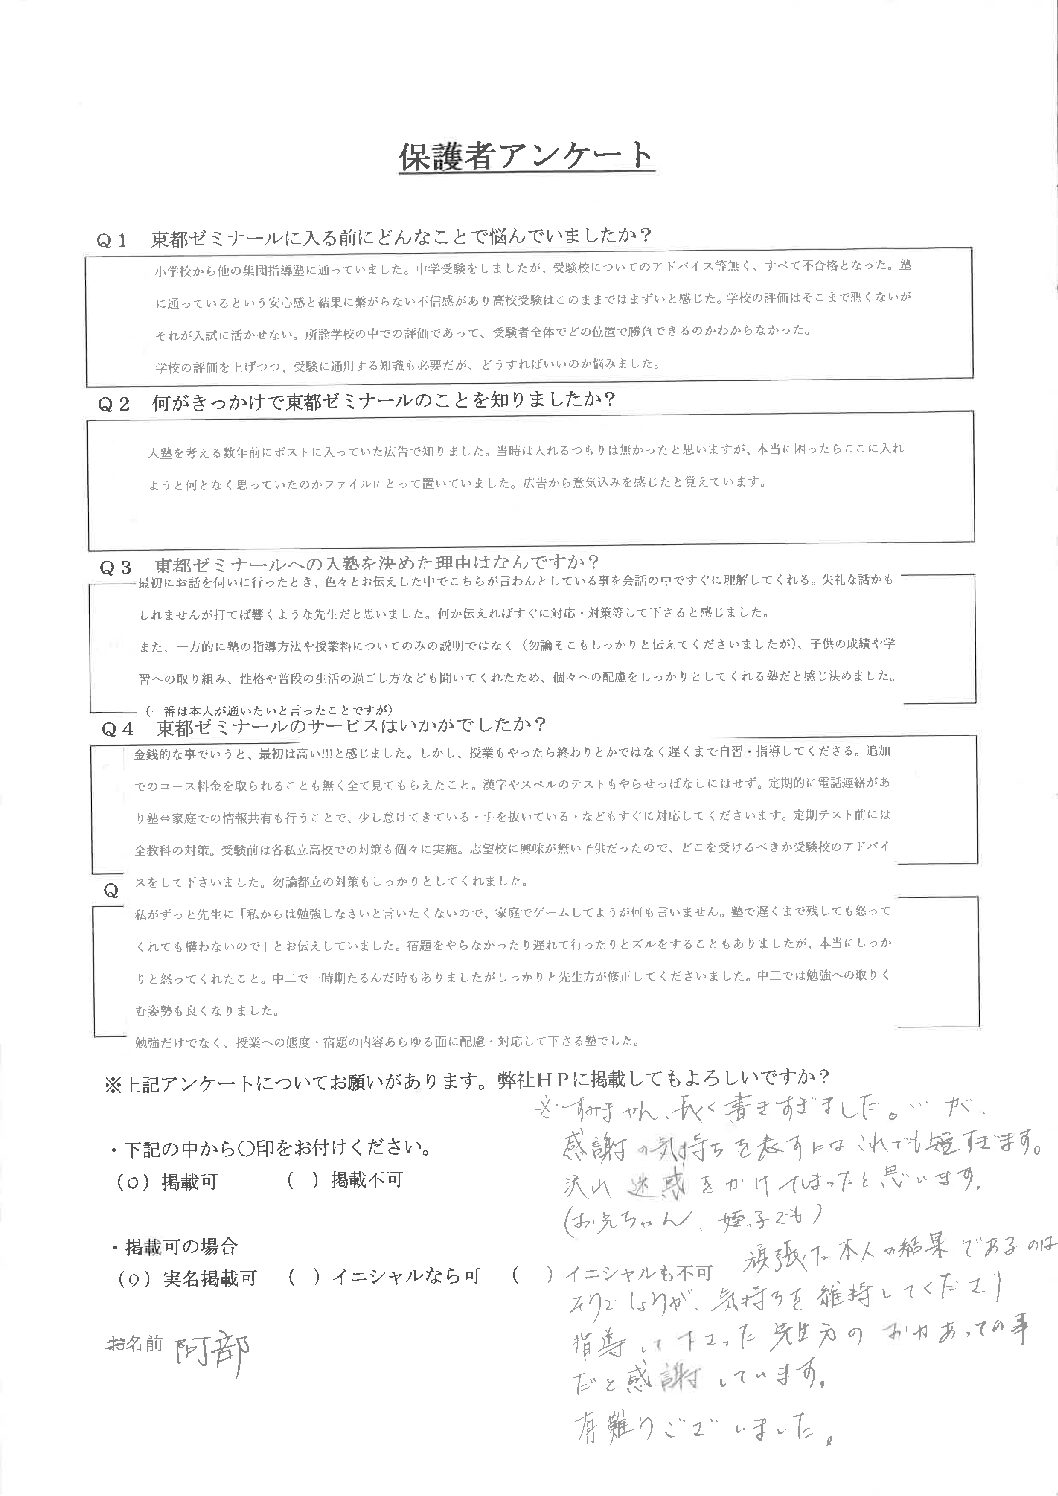 保護者アンケート
Q1 東都ゼミナールに入る前にどんなことで悩んでいましたか？
小学校から他の集団指導塾に通っていました。中学受験をしましたが、受験校についてのアドバイス等無く、すべて不合格となった。塾
に通っているという安心感と結果に繋がらない不信感があり高校受験はこのままではまずいと感じた。学校の評価はそこまで悪くないが
それが入試に活かせない。所詮学校の中での評価であって、受験者全体でどの位置で勝負できるのかわからなかった。
学校の評価を上げつつ、受験に通用する知識も必要だが、どうすればいいのか悩みました。
Q2 何がきっかけで東都ゼミナールのことを知りましたか？
入塾を考える数年前にポストに入っていた広告で知りました。当時は入れるつもりは無かったと思いますが、本当に困ったらここに入れ
ようと何となく思っていたのかファイルにとって置いていました。広告から意気込みを感じたと覚えています。
Q3 東都ゼミナールへの入塾を決めた理由はなんですか？
最初にお話を伺いに行ったとき、色々とお伝えした中でこちらが言わんとしている事を会話の中ですぐに理解してくれる。失礼な話かも
しれませんが打てば響くような先生だと思いました。何か伝えればすぐに対応・対策等して下さると感じました。
また、一方的に塾の指導方法や授業料についてのみの説明ではなく（勿論そこもしっかりと伝えてくださいましたが）、子供の成績や学
習への取り組み、性格や普段の生活の過ごし方なども聞いてくれたため、個々への配慮をしっかりとしてくれる塾だと感じ決めました。
（一番は本人が通いたいと言ったことですが）
Q4 東都ゼミナールのサービスはいかがでしたか？
金銭的な事でいうと、最初は高い!!!と感じました。しかし、授業もやったら終わりとかではなく遅くまで自習・指導してくださる。追加
でのコース料金を取られることも無く全て見てもらえたこと。漢字やスペルのテストもやらせっぱなしにはせず。定期的に電話連絡があ
り塾⇔家庭での情報共有も行うことで、少し怠けてきている・手を抜いている・などもすぐに対応してくださいます。定期テスト前には
全教科の対策。受験前は各私立高校での対策も個々に実施。志望校に興味が無い子供だったので、どこを受けるべきか受験校のアドバイ
Q スをして下さいました。勿論都立の対策もしっかりとしてくれました。
私がずっと先生に「私からは勉強しなさいと言いたくないので、家庭でゲームしてようが何も言いません。塾で遅くまで残しても怒って
くれても構わないので」とお伝えしていました。宿題をやらなかったり遅れて行ったりとズルをすることもありましたが、本当にしっか
りと怒ってくれたこと。中二で一時期たるんだ時もありましたがしっかりと先生方が修正してくださいました。中三では勉強への取りく
む姿勢も良くなりました。
勉強だけでなく、授業への態度・宿題の内容あらゆる面に配慮・対応して下さる塾でした。
※上記アンケートについてお願いがあります。弊社HPに掲載してもよろしいですか？
※すみません、長く書きすぎました。…が、
感謝の気持ちを表すにはこれでも短すぎます。
沢山迷惑をかけてしまったと思います。
（お兄ちゃん、姪子でも）
・下記の中から○印をお付けください。
（○）掲載可 （ ）掲載不可
・掲載可の場合
（○）実名掲載可 （ ）イニシャルなら可 （ ）イニシャルも不可
頑張った本人の結果であるのは
そうでしょうが、気持ちを維持してくださり
指導して下さった先生方のおかあっての事
だと感謝しています。
有難うございました。
お名前 阿部